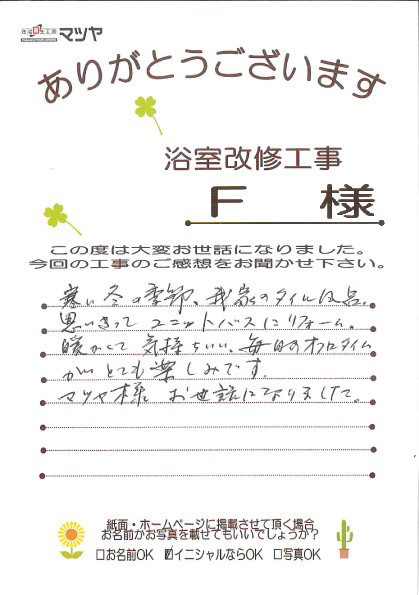 マツヤ
ありがとうございます
浴室改修工事
F 様
この度は大変お世話になりました。
今回の工事のご感想をお聞かせ下さい。
寒い冬の季節、我家のタイルは
思いきって ユニットバスにリフォーム。
暖かくて 気持ちいい、毎日のオフロタイム
がとても楽しみです。
マツヤ様 お世話になりまして。
紙面・ホームページに掲載させて頂く場合
お名前かお写真を載せてもいいでしょうか?
□お名前OK ☑イニシャルならOK □写真OK